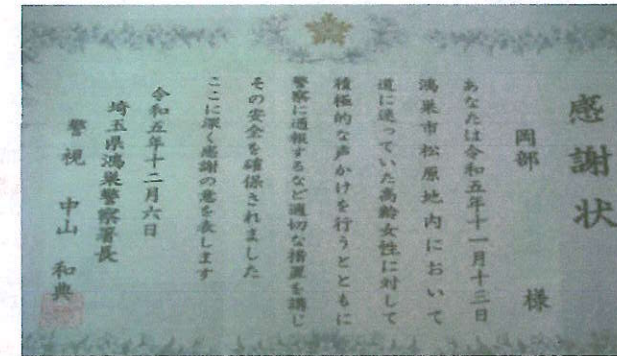 感謝状
岡部 様
あなたは令和五年十一月十三日
鴻巣市松原地内において
道に迷っていた高齢女性に対して
積極的な声かけを行うとともに
警察に通報するなど適切な措置を講じ
その安全を確保されました
ここに深く感謝の意を表します
令和五年十二月六日
埼玉県鴻巣警察署長
警視 中山 和典